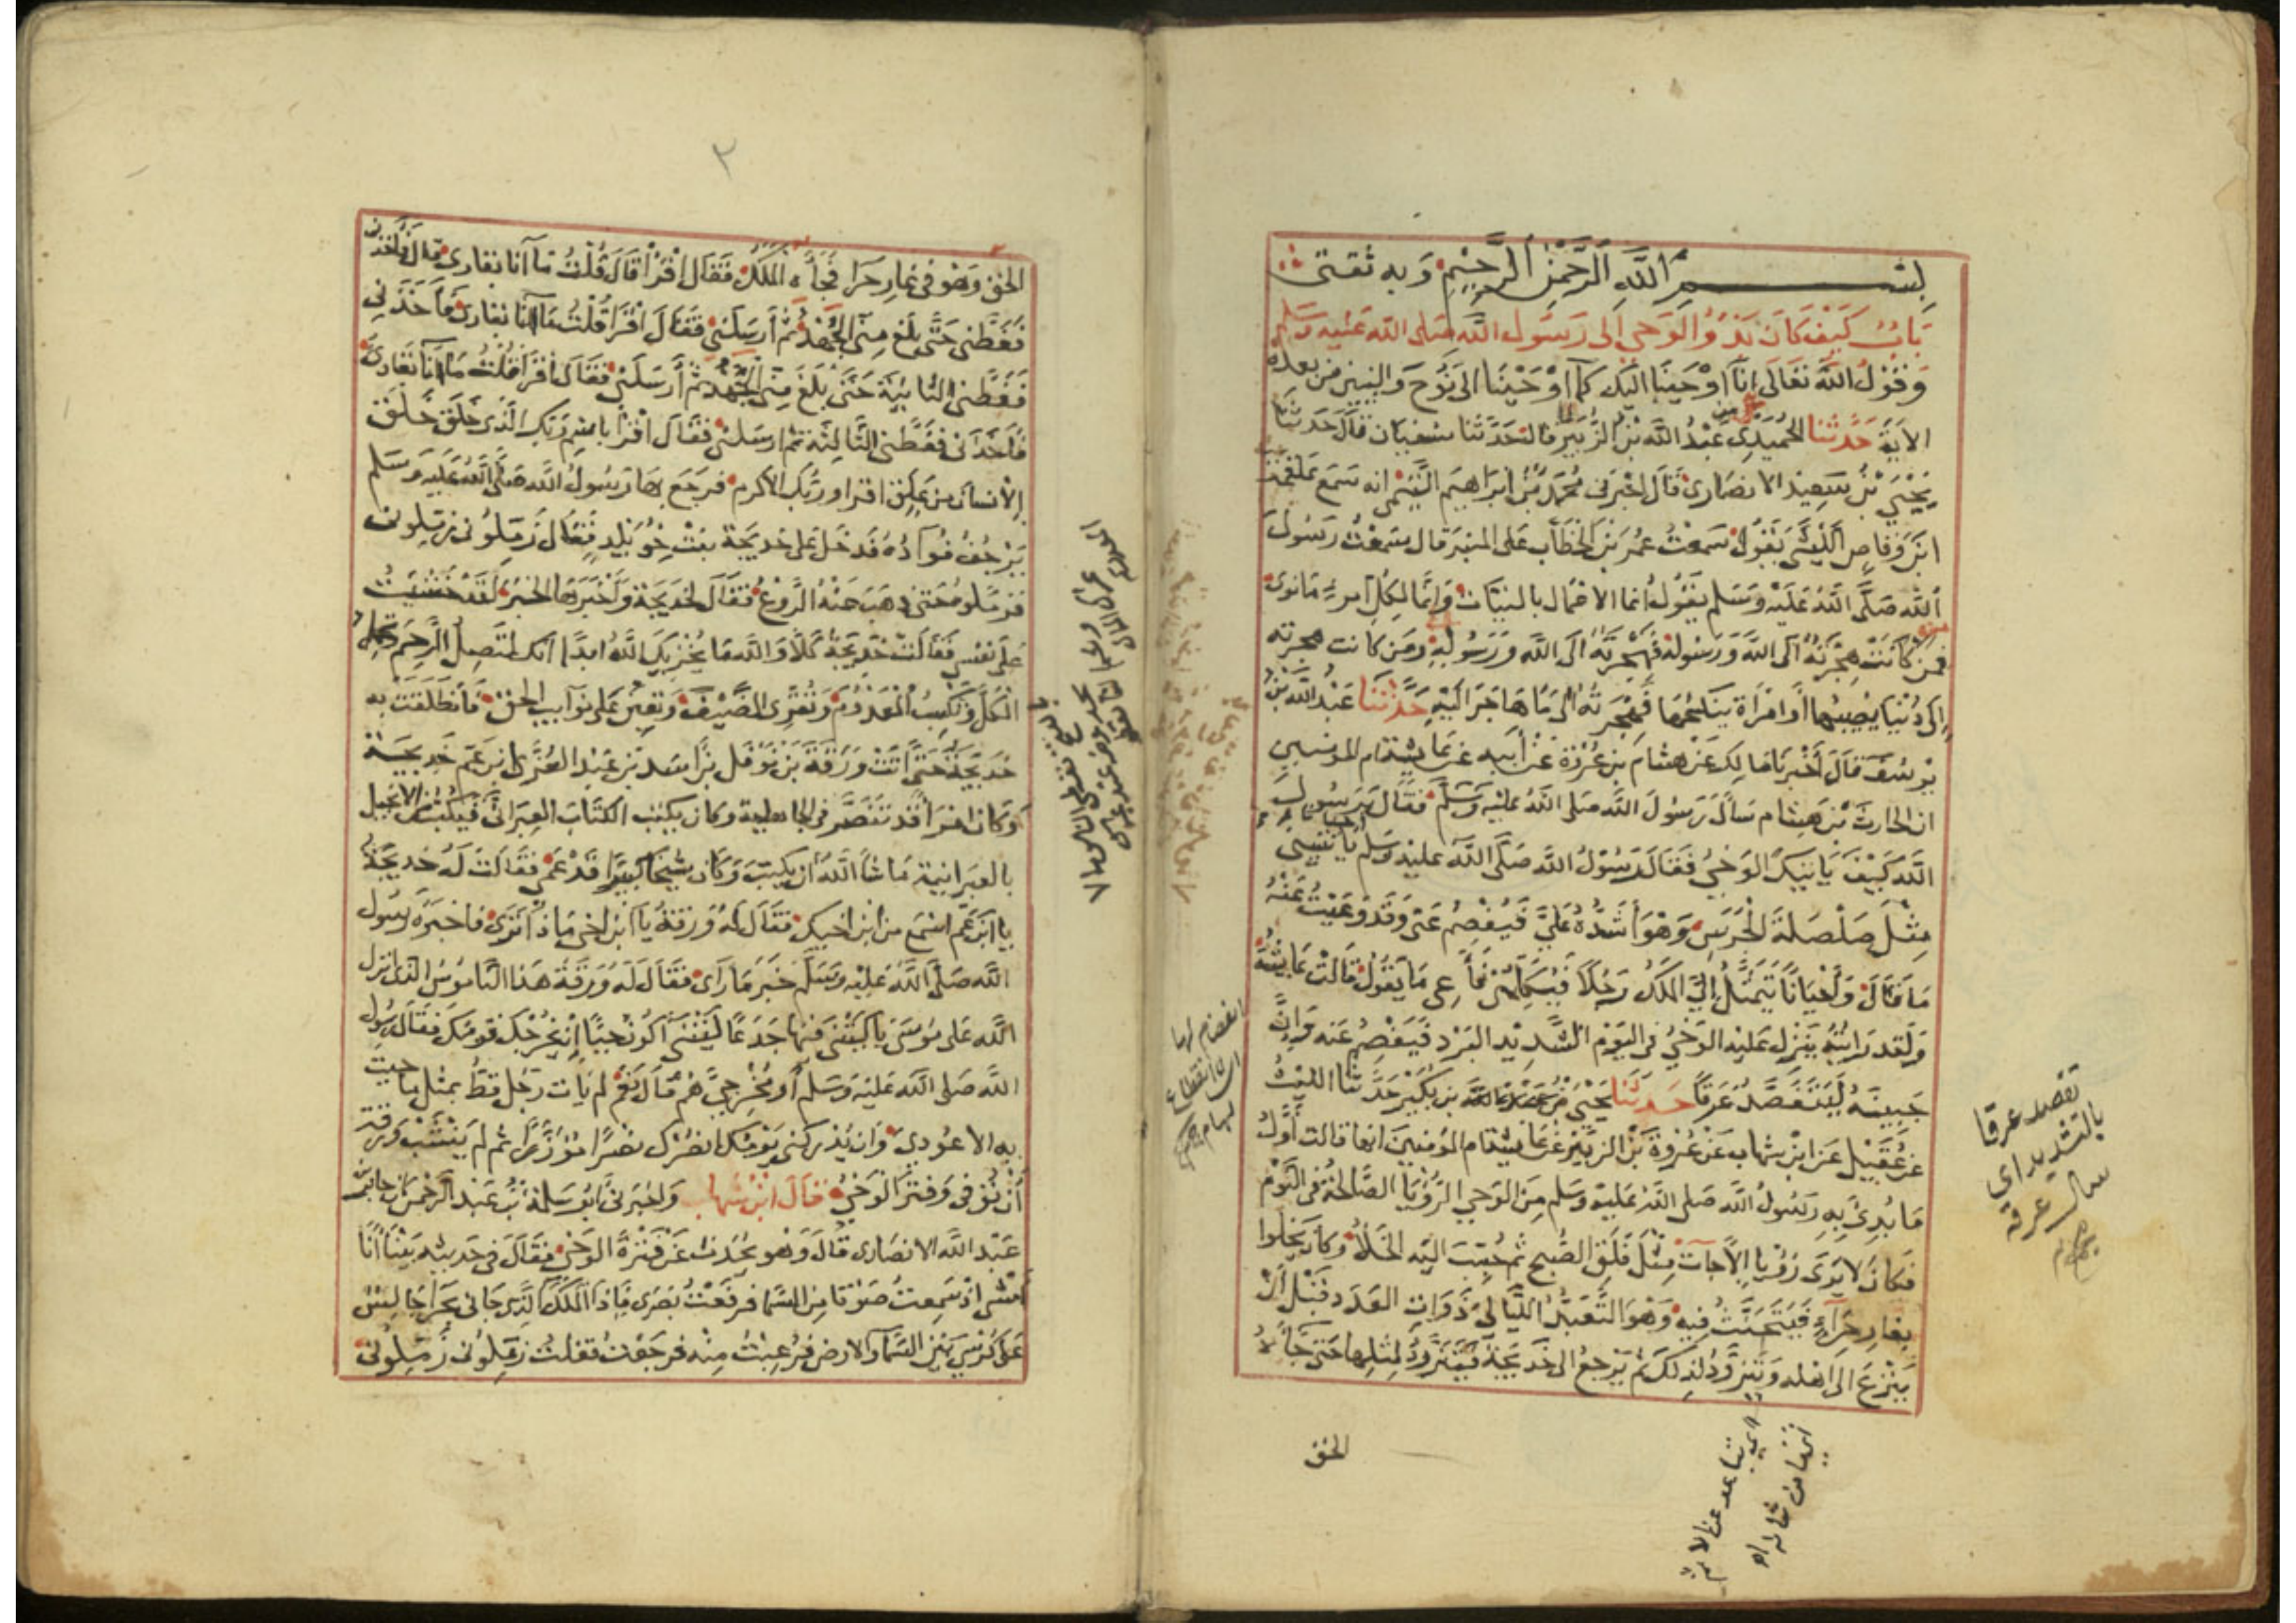 بسم الله الرحمن الرحيم وبه ثقتي
باب كيف كان بدؤ الوحي الى رسول الله صلى الله عليه وسلم
وقول الله تعالى انا اوحينا اليك كما اوحينا الى نوح والنبيين من بعده
الاية حدثنا الحميدي عبد الله بن الزبير قال حدثنا سفيان قال حدثنا
يحيى بن سعيد الانصاري قال اخبرني محمد بن ابراهيم التيمي انه سمع علقمة
ابن وقاص الليثي يقول سمعت عمر بن الخطاب على المنبر قال سمعت رسول
الله صلى الله عليه وسلم يقول انما الاعمال بالنيات وانما لكل امرء ما نوى
فمن كانت هجرته الى الله ورسوله فهجرته الى الله ورسوله ومن كانت هجرته
الى دنيا يصيبها أو امرأة ينكحها فهجرته الى ما هاجر اليه حدثنا عبد الله بن
يوسف قال أخبرنا مالك عن هشام بن عروة عن أبيه عن عايشة ام المومنين
ان الحارث بن هشام سأل رسول الله صلى الله عليه وسلم فقال يرسول
الله كيف ياتيك الوحي فقال رسول الله صلى الله عليه وسلم احيانا ياتيني
مثل صلصلة الجرس وهو أشده علي فيفصم عني وقد وعيت عنه
ما قال وأحيانا يتمثل لي الملك رجلا فيكلمني فأعي ما يقول قالت عايشة
ولقد رايته ينزل عليه الوحي في اليوم الشديد البرد فيفصم عنه وإن
جبينه ليتفصد عرقا حدثنا يحيى بن عبد الله بن بكير حدثنا الليث
عن عقيل عن ابن شهاب عن عروة بن الزبير عن عايشة ام المؤمنين انها قالت أول
ما بدئ به رسول الله صلى الله عليه وسلم من الوحي الرؤيا الصالحة في النوم
فكان لا يرى رؤيا إلا جآت مثل فلق الصبح ثم حبب اليه الخلاء وكان يخلوا
بغار حرآء فيتحنث فيه وهو التعبد الليالي ذوات العدد قبل أن
ينزع الى اهله ويتزود لذلك ثم يرجع الى خديجة فيتزود لمثلها حتى جاءه
الحق
تفصد عرقا
بالتشديد اي
سال عرقه
٢
الحق وهو في غار حرا فجاءه الملك فقال اقرأ قال قلت ما آنا بقارى قال فأخذني
فغطني حتى بلغ مني الجهد ثم أرسلني فقال اقرا قلت ما انا بقارى فأخذني
فغطني الثانية حتى بلغ مني الجهد ثم أرسلني فقال اقرا فقلت ما انا بقارى
فأخذني فغطني الثالثة ثم ارسلني فقال اقرأ باسم ربك الذي خلق خلق
الانسان من علق اقرا وربك الاكرم فرجع بها رسول الله صلى الله عليه وسلم
يرجف فوآده فدخل على خديجة بنت خويلد فقال زملوني زملوني
فزملوه حتى ذهب عنه الروع فقال لخديجة وأخبرها الخبر لقد خشيت
على نفسي فقالت خديجة كلا والله ما يخزيك الله ابدا انك لتصل الرحم وتحمل
الكل وتكسب المعدوم وتقري الضيف وتعين على نوآيب الحق فأنطلقت به
خديجة حتى اتت ورقة بن نوفل بن أسد بن عبد العزى ابن عم خديجة
وكان امرأ قد تنصر في الجاهلية وكان يكتب الكتاب العبراني فيكتب من الانجيل
بالعبرانية ما شآ الله أن يكتب وكان شيخا كبيرا قد عمي فقالت له خديجة
يا ابن عم اسمع من ابن اخيك فقال له ورقة يا ابن اخي ماذا ترى فاخبره رسول
الله صلى الله عليه وسلم خبر ما رآى فقال له ورقة هذا الناموس الذي انزل
الله على موسى يا ليتني فيها جذعا ليتني أكون حيا إذ يخرجك قومك فقال رسول
الله صلى الله عليه وسلم أو مخرجي هم قال نعم لم يات رجل قط بمثل ما جيت
به الا عودي وان يدركني يومك انصرك نصرا مؤزرا ثم لم ينشب ورقة
أن توفي وفتر الوحي قال ابن شهاب واخبرني ابو سلمة بن عبد الرحمن ان جابر بن
عبد الله الانصاري قال وهو يحدث عن فترة الوحي فقال في حديثه بينا أنا
امشي اذ سمعت صوتا من السما فرفعت بصري فاذا الملك الذي جاني بحرا جالس
على كرسي بين السمآ والارض فرعبت منه فرجعت فقلت زملوني زملوني